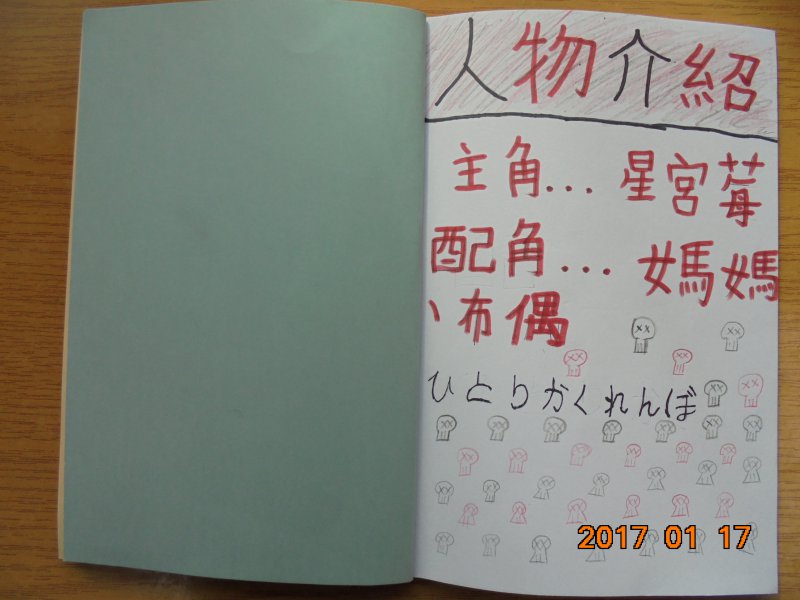 人物介紹
主角... 星宮莓
配角... 媽媽
、布偶
ひとりかくれんぼ
2017 01 17